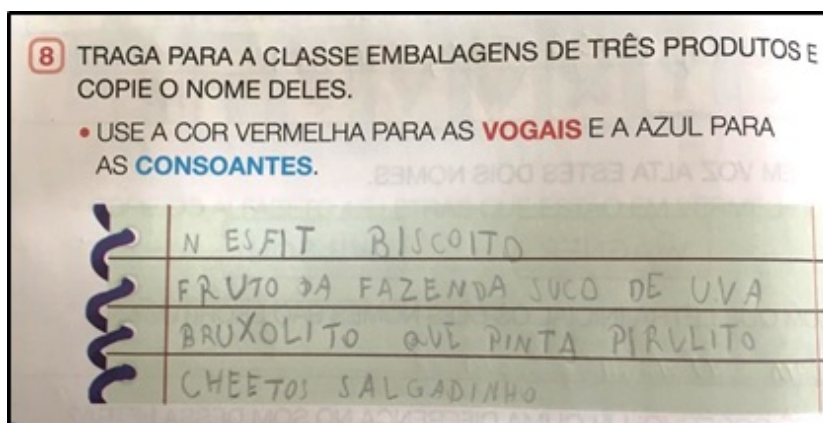 8 TRAGA PARA A CLASSE EMBALAGENS DE TRÊS PRODUTOS E
COPIE O NOME DELES.
• USE A COR VERMELHA PARA AS VOGAIS E A AZUL PARA
AS CONSOANTES.
N ESFIT BISCOITO
FRUTO DA FAZENDA SUCO DE UVA
BRUXOLITO QUE PINTA PIRULITO
CHEETOS SALGADINHO